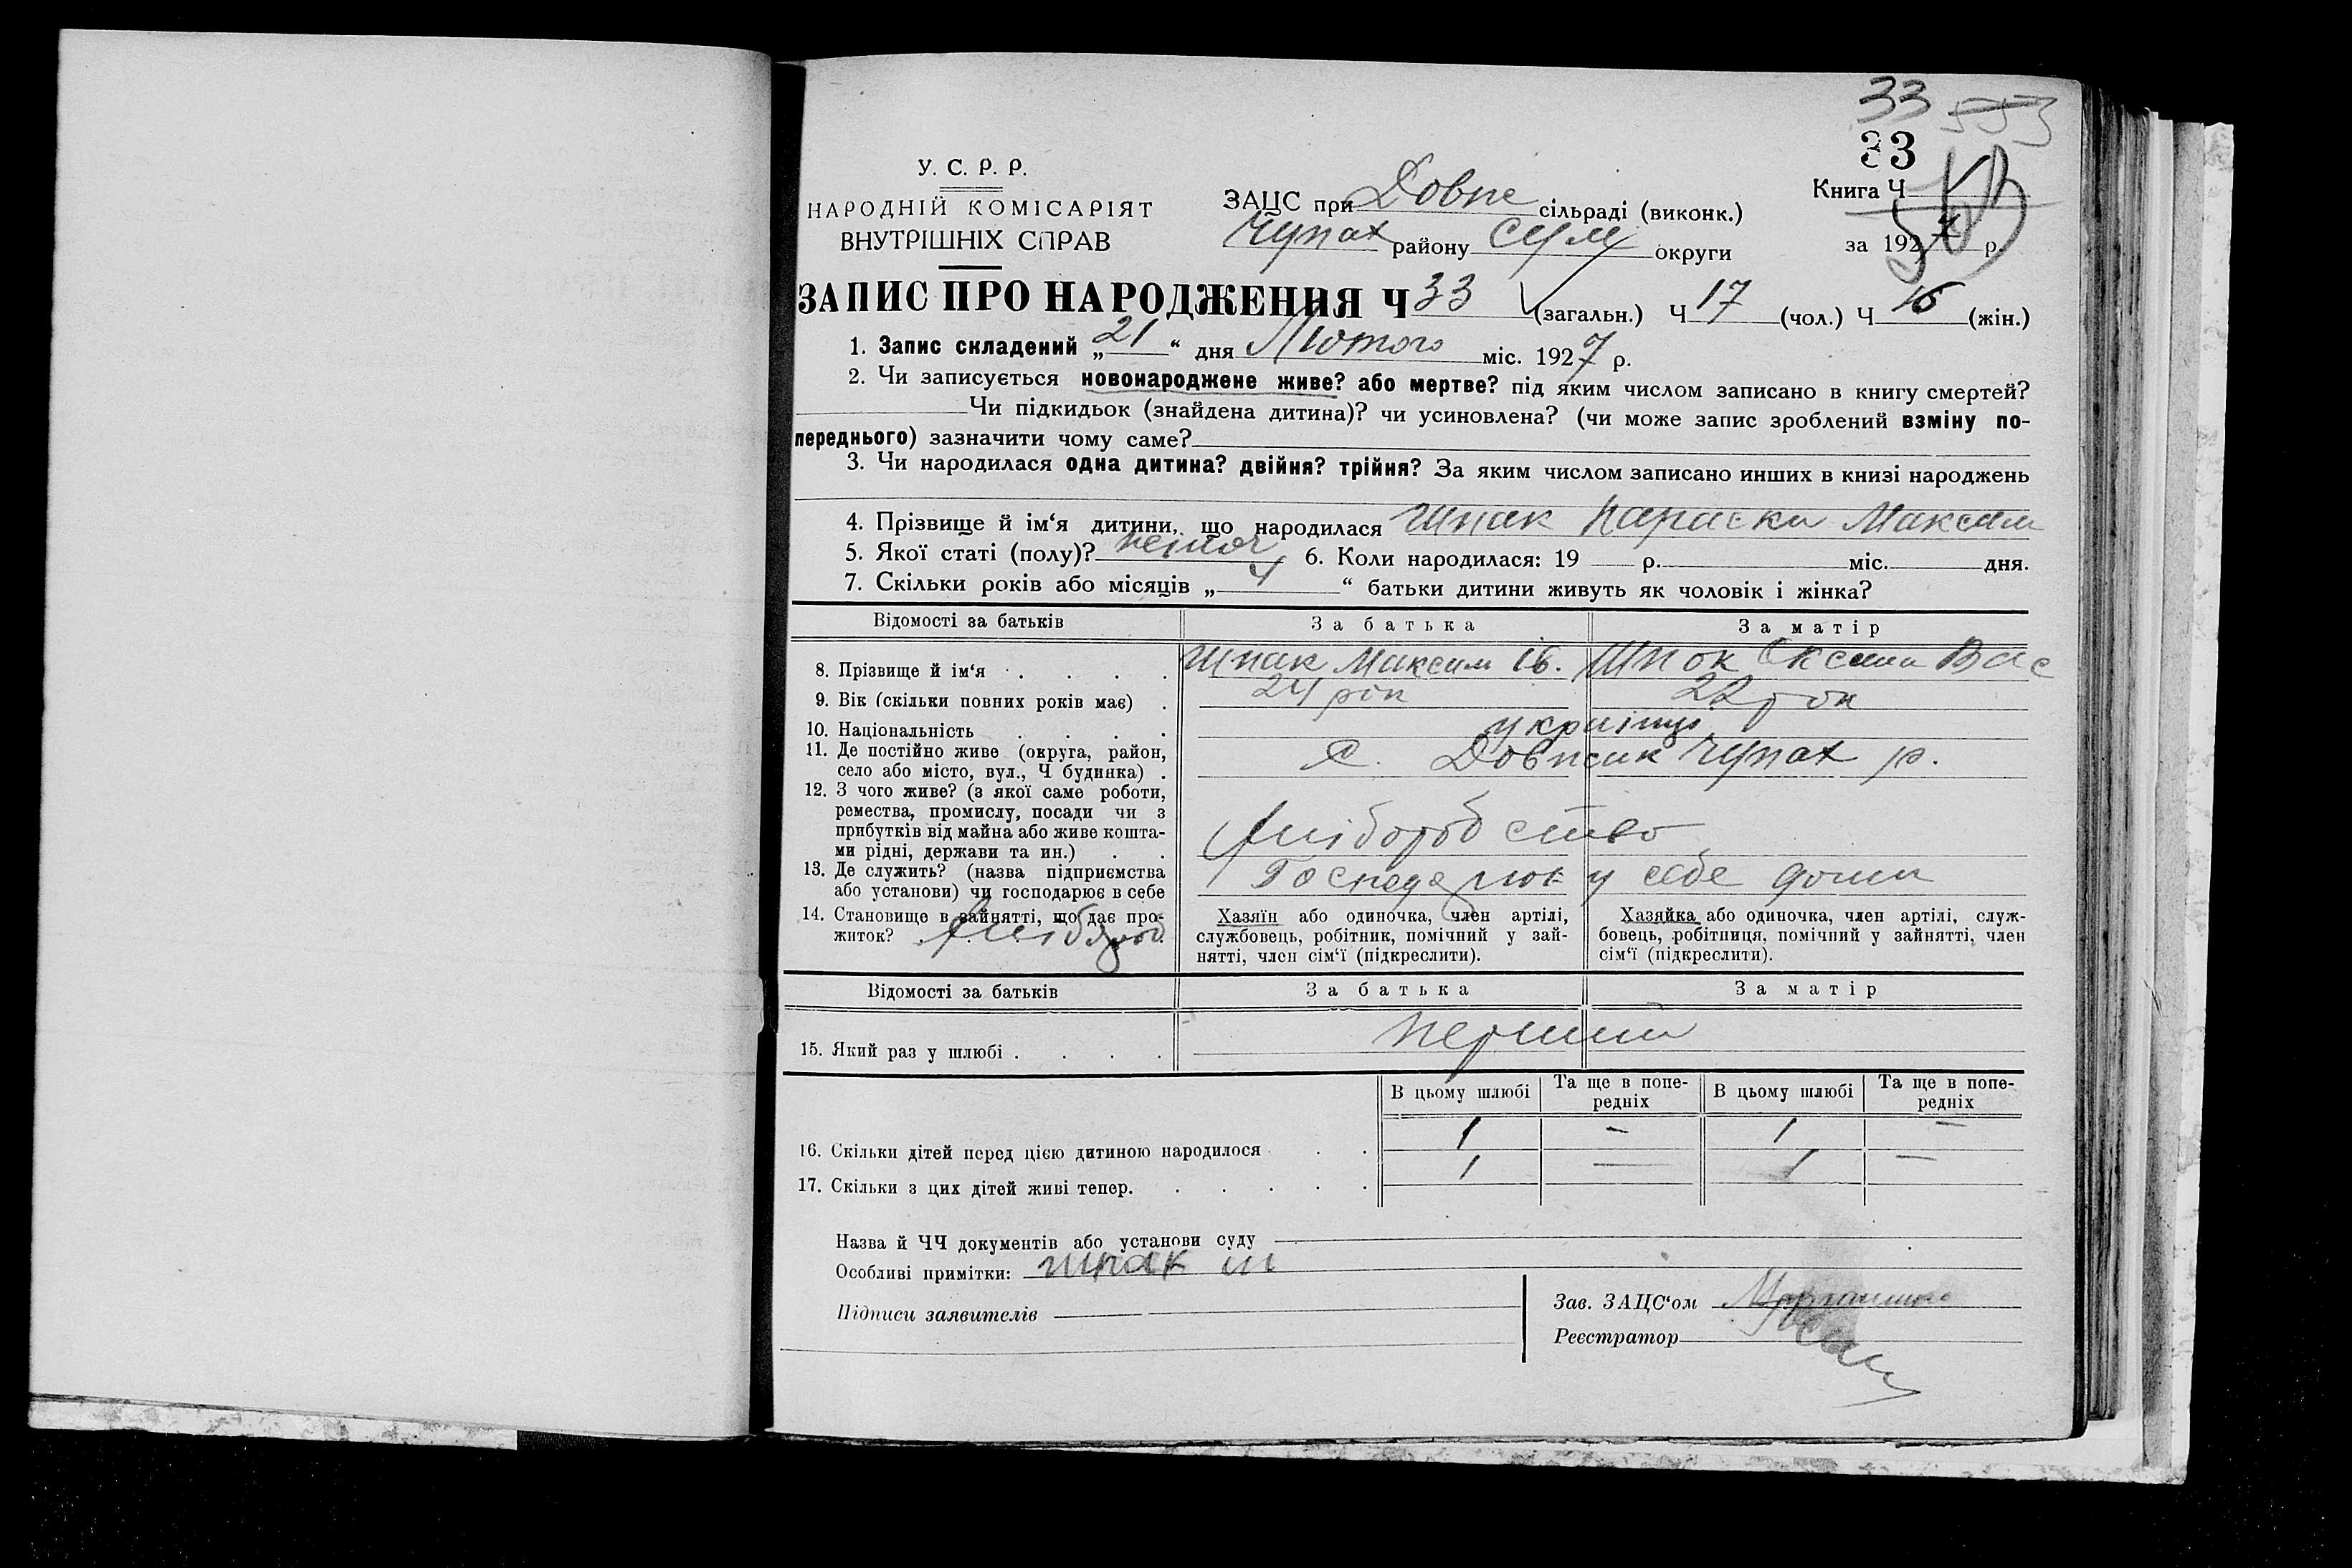 33 553
33
У. С. Р. Р.
НАРОДНІЙ КОМІСАРІЯТ
ВНУТРІШНІХ СПРАВ
ЗАЦС при Довпе сільраді (виконк.)
Чупах району Сум округи
Книга Ч
за 1927 р.
ЗАПИС ПРО НАРОДЖЕННЯ Ч 33 (загальн.) Ч 17 (чол.) Ч 16 (жін.)
1. Запис складений „21“ дня Лютого міс. 1927 р.
2. Чи записується новонароджене живе? або мертве? під яким числом записано в книгу смертей?
Чи підкидьок (знайдена дитина)? чи усиновлена? (чи може запис зроблений взміну по-
переднього) зазначити чому саме?
3. Чи народилася одна дитина? двійня? трійня? За яким числом записано инших в книзі народжень
4. Прізвище й ім‘я дитини, що народилася Шпак Параски Максим
5. Якої статі (полу)? 6. Коли народилася: 19 р. міс. дня.
7. Скільки років або місяців „ 4 “ батьки дитини живуть як чоловік і жінка?
Відомості за батьків За батька За матір
8. Прізвище й ім‘я . . . . Шпак Максим Шпок Оксана Вас
9. Вік (скільки повних років має) . 24 рок 22 рок
10. Національність . . . . україңці
11. Де постійно живе (округа, район,
село або місто, вул., Ч будинка) . с. Довпсик Чупах р.
12. З чого живе? (з якої саме роботи,
ремества, промислу, посади чи з
прибутків від майна або живе кошта-
ми рідні, держави та ин.) . . Хліборобство
13. Де служить? (назва підприємства
або установи) чи господарює в себе Господарює у себе дома
14. Становище в зайнятті, що дає про-
житок? Хлібороб
Хазяїн або одиночка, член артілі,
службовець, робітник, помічний у зай-
нятті, член сім‘ї (підкреслити).
Хазяйка або одиночка, член артілі, служ-
бовець, робітниця, помічний у зайнятті, член
сім‘ї (підкреслити).
Відомості за батьків За батька За матір
15. Який раз у шлюбі . . . . перший
В цьому шлюбі Та ще в попе-
редніх В цьому шлюбі Та ще в попе-
редніх
16. Скільки дітей перед цією дитиною народилося . . 1 — 1 —
17. Скільки з цих дітей живі тепер. . . . . . 1 — 1 —
Назва й ЧЧ документів або установи суду
Особливі примітки: шпак м
Підписи заявителів
Зав. ЗАЦС‘ом
Реєстратор